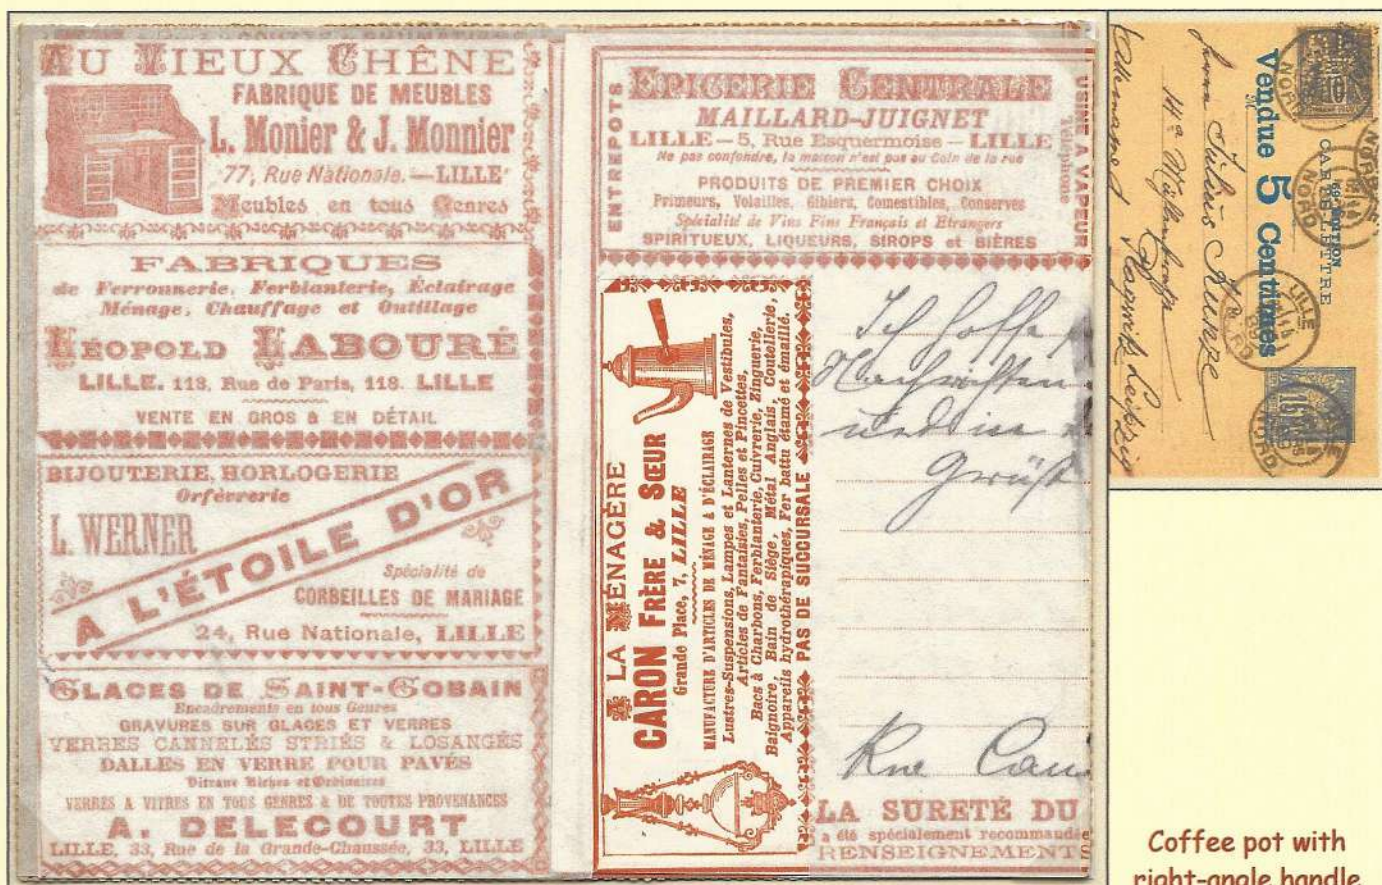 AU VIEUX CHÊNE
FABRIQUE DE MEUBLES
L. Monier & J. Monnier
77, Rue Nationale. — LILLE
Meubles en tous Genres
FABRIQUES
de Ferronnerie, Ferblanterie, Éclairage
Ménage, Chauffage et Outillage
LÉOPOLD LABOURÉ
LILLE. 118, Rue de Paris, 118. LILLE
VENTE EN GROS & EN DÉTAIL
BIJOUTERIE, HORLOGERIE
Orfèvrerie
L. WERNER
A L'ÉTOILE D'OR
Spécialité de
CORBEILLES DE MARIAGE
24, Rue Nationale, LILLE
GLACES DE SAINT-GOBAIN
Encadrements en tous Genres
GRAVURES SUR GLACES ET VERRES
VERRES CANNELÉS STRIÉS & LOSANGÉS
DALLES EN VERRE POUR PAVÉS
Vitraux Riches et Ordinaires
VERRES A VITRES EN TOUS GENRES & DE TOUTES PROVENANCES
A. DELECOURT
LILLE, 33, Rue de la Grande-Chaussée, 33, LILLE
ENTREPOTS
EPICERIE CENTRALE
MAILLARD-JUIGNET
LILLE — 5, Rue Esquermoise — LILLE
Ne pas confondre, la maison n'est pas au Coin de la rue
PRODUITS DE PREMIER CHOIX
Primeurs, Volailles, Gibiers, Comestibles, Conserves
Spécialité de Vins Fins Français et Etrangers
SPIRITUEUX, LIQUEURS, SIROPS et BIÈRES
USINE A VAPEUR
Téléphone
A LA MÉNAGÈRE
CARON FRÈRE & SŒUR
Grande Place, 7, LILLE
MANUFACTURE D'ARTICLES DE MÉNAGE & D'ÉCLAIRAGE
Lustres-Suspensions, Lampes et Lanternes de Vestibules,
Articles de Fantaisies, Pelles et Pincettes,
Bacs à Charbons, Ferblanterie, Cuivrerie, Zinguerie,
Baignoire, Bain de Siège, Métal Anglais, Coutellerie,
Appareils hydrothérapiques, Fer battu étamé et émaillé.
PAS DE SUCCURSALE
Ich hoffe
Nachrichten
und in
Grüßt
Rue Cam
LA SURETÉ DU
a été spécialement recommandée
RENSEIGNEMENTS
CARTE LETTRE
Vendue 5 Centimes
LILLE
NORD
Herrn Julius Kunze
14a
Leipzig
Allemagne
Coffee pot with
right-angle handle